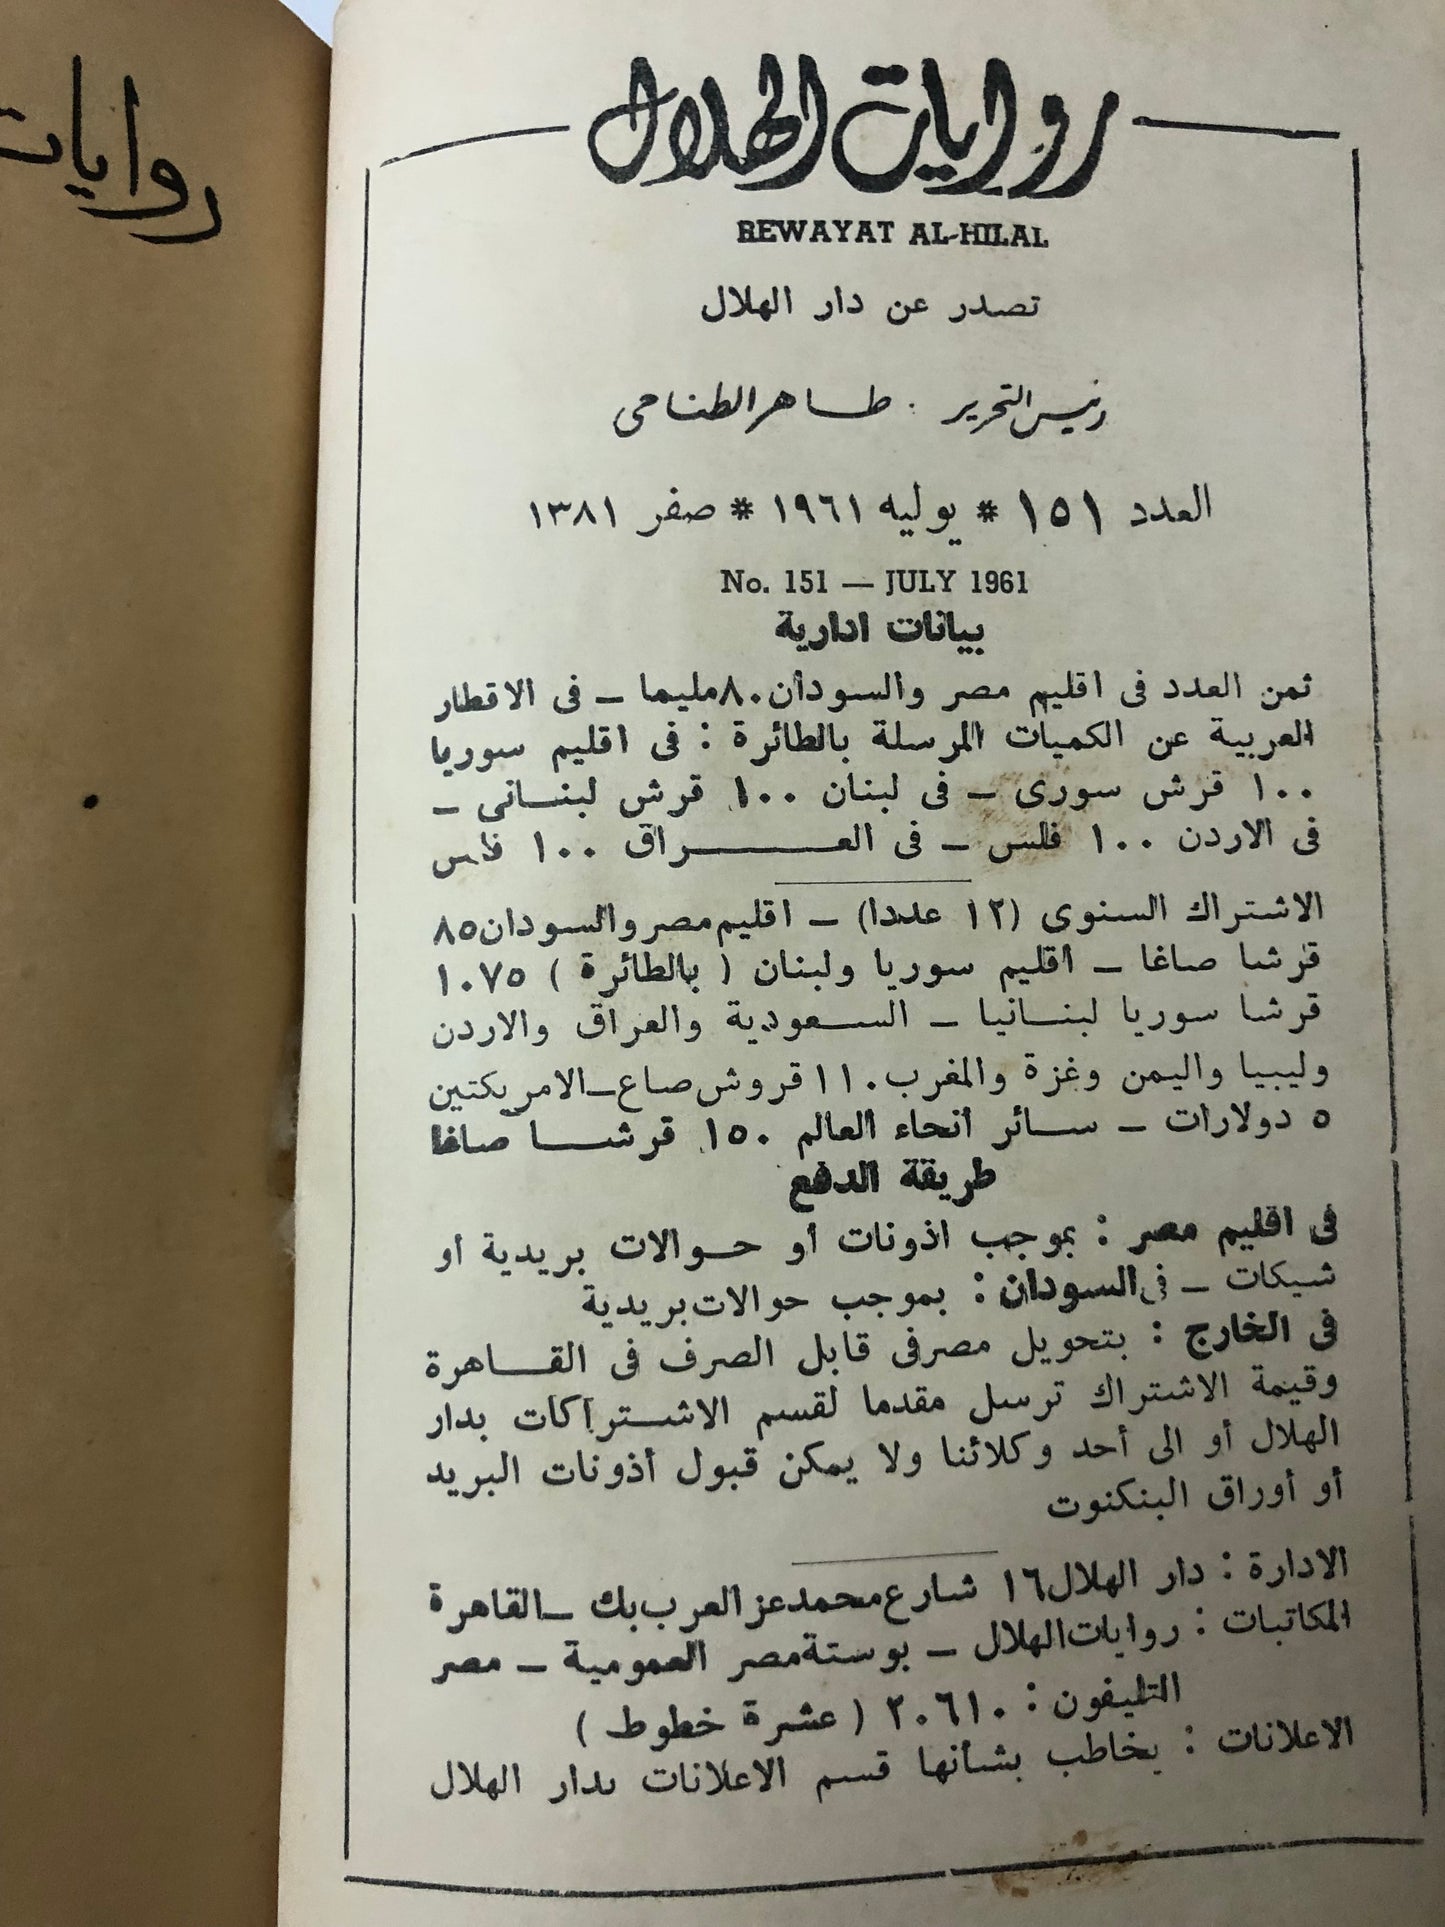 روايات
روايات الهلال
REWAYAT AL-HILAL
تصدر عن دار الهلال
رئيس التحرير . طاهر الطناحى
العدد ١٥١ * يوليه ١٩٦١ * صفر ١٣٨١
No. 151 — JULY 1961
بيانات ادارية
ثمن العدد فى اقليم مصر والسودان ٨٠ مليما ــ فى الاقطار
العربية عن الكميات المرسلة بالطائرة : فى اقليم سوريا
١٠٠ قرش سورى ــ فى لبنان ١٠٠ قرش لبنانى ــ
فى الاردن ١٠٠ فلس ــ فى العراق ١٠٠ فلس
الاشتراك السنوى (١٢ عددا) ــ اقليم مصر والسودان ٨٥
قرشا صاغا ــ اقليم سوريا ولبنان ( بالطائرة ) ١٠٧٥
قرشا سوريا لبنانيا ــ السعودية والعراق والاردن
وليبيا واليمن وغزة والمغرب ١١٠ قروش صاع ــ الامريكتين
٥ دولارات ــ سائر أنحاء العالم ١٥٠ قرشا صاغا
طريقة الدفع
فى اقليم مصر : بموجب اذونات أو حوالات بريدية أو
شيكات ــ فى السودان : بموجب حوالات بريدية
فى الخارج : بتحويل مصرفى قابل الصرف فى القاهرة
وقيمة الاشتراك ترسل مقدما لقسم الاشتراكات بدار
الهلال أو الى أحد وكلائنا ولا يمكن قبول أذونات البريد
أو أوراق البنكنوت
الادارة : دار الهلال ١٦ شارع محمد عز العرب بك ــ القاهرة
المكاتبات : روايات الهلال ــ بوستة مصر العمومية ــ مصر
التليفون : ٢٠٦١٠ ( عشرة خطوط )
الاعلانات : يخاطب بشأنها قسم الاعلانات بدار الهلال